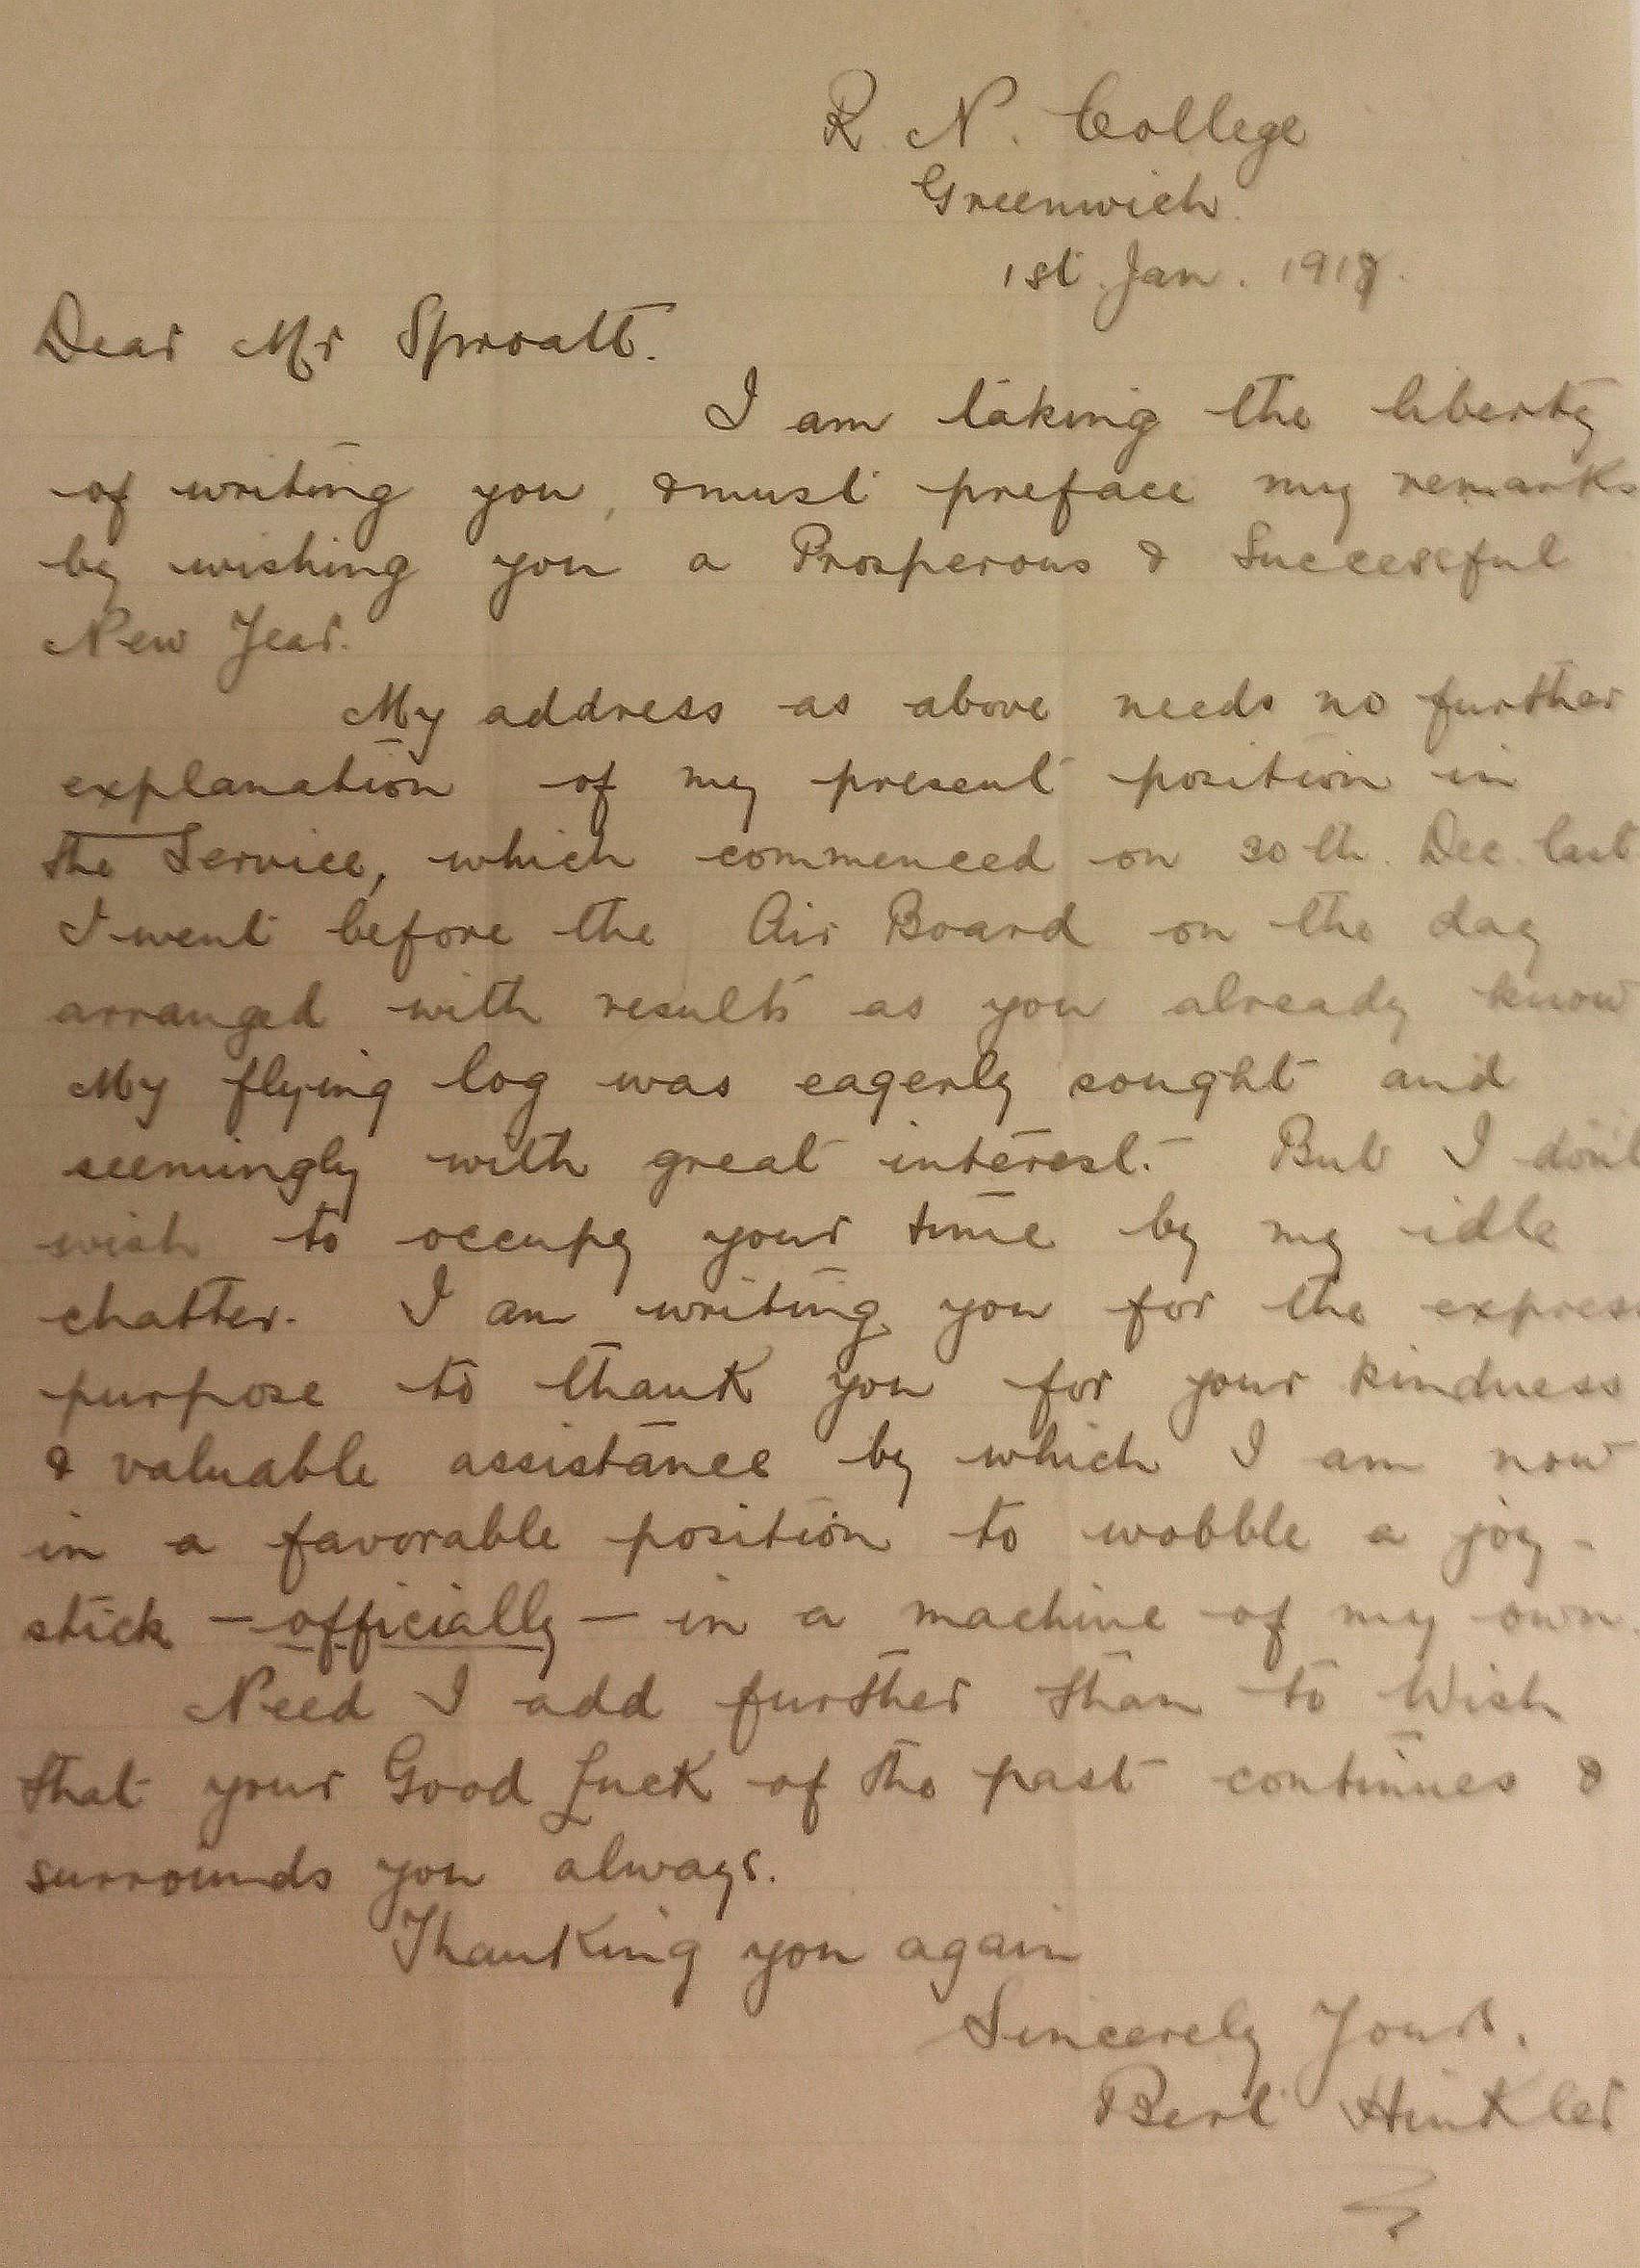 R. N. College
Greenwich.
1st. Jan. 1918.
Dear Mr Sproatt.
I am taking the liberty
of writing you, & must preface my remarks
by wishing you a Prosperous & Successful
New Year.
My address as above needs no further
explanation of my present position in
the Service, which commenced on 30th. Dec. last
I went before the Air Board on the day
arranged with results as you already know
My flying log was eagerly sought and
seemingly with great interest. But I don't
wish to occupy your time by my idle
chatter. I am writing you for the express
purpose to thank you for your kindness
& valuable assistance by which I am now
in a favorable position to wobble a joy-
stick — officially — in a machine of my own.
Need I add further than to Wish
that your Good Luck of the past continues &
surrounds you always.
Thanking you again
Sincerely Yours.
Bert Hinkler